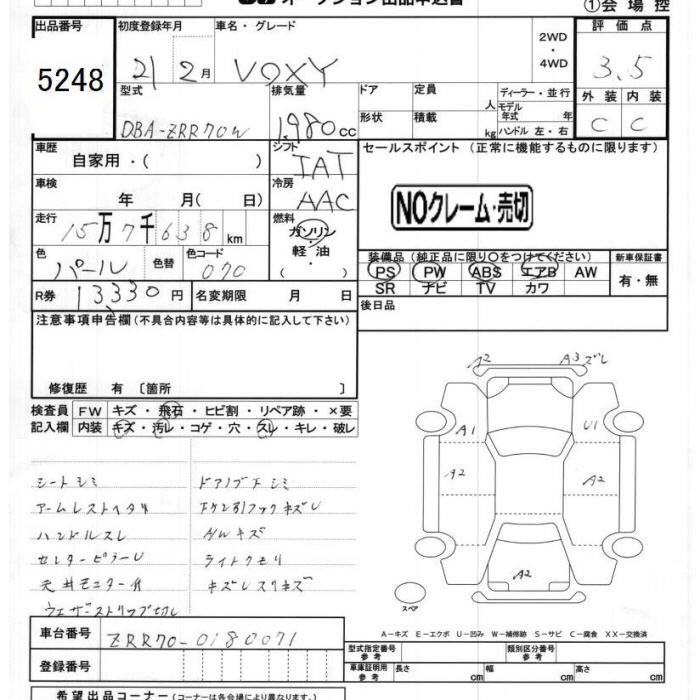 ①会場控
出品番号 初度登録年月 車名・グレード 評価点
5248 21 2月 VOXY 2WD・4WD 3.5
型式 排気量 ドア 定員 人 ディーラー・並行 外装 内装
DBA-ZRR70W 1,980cc 形状 積載 kg モデル年式 年 ハンドル 左・右 C C
車歴 自家用・( ) シフト IAT セールスポイント (正常に機能するものに限ります)
車検 年 月( 日) 冷房 AAC
NOクレーム・売切
走行 15万7千638km 燃料 ガソリン・軽油・( )
色 パール 色替 色コード 070
装備品 (純正品に限り○をつけてください) 新車保証書
PS PW ABS エアB AW 有・無
SR ナビ TV カワ
R券 13,330円 名変期限 月 日
後日品
注意事項申告欄 (不具合内容等は具体的に記入して下さい)
修復歴 有 〔箇所 〕
検査員 FW キズ・飛石・ヒビ割・リペア跡・×要
記入欄 内装 キズ・汚レ・コゲ・穴・スレ・キレ・破レ
A2 A3ズレ
A1 U1
A2 A2
A2
スペア
シートシミ ドアノブ下シミ
アームレストヘタリ
ハンドルスレ A/Wキズ
センターピラーU ライトクモリ
天井モニター付 キズU スリキズ
ウェザーストリップ切レ
A-キズ E-エクボ U-凹み W-補修跡 S-サビ C-腐食 XX-交換済
車台番号 ZRR70-0180071
登録番号
型式指定番号 参考 類別区分番号 参考
車庫証明用 参考 長さ cm 幅 cm 高さ cm
希望出品コーナー (コーナーは各会場により異なります。)